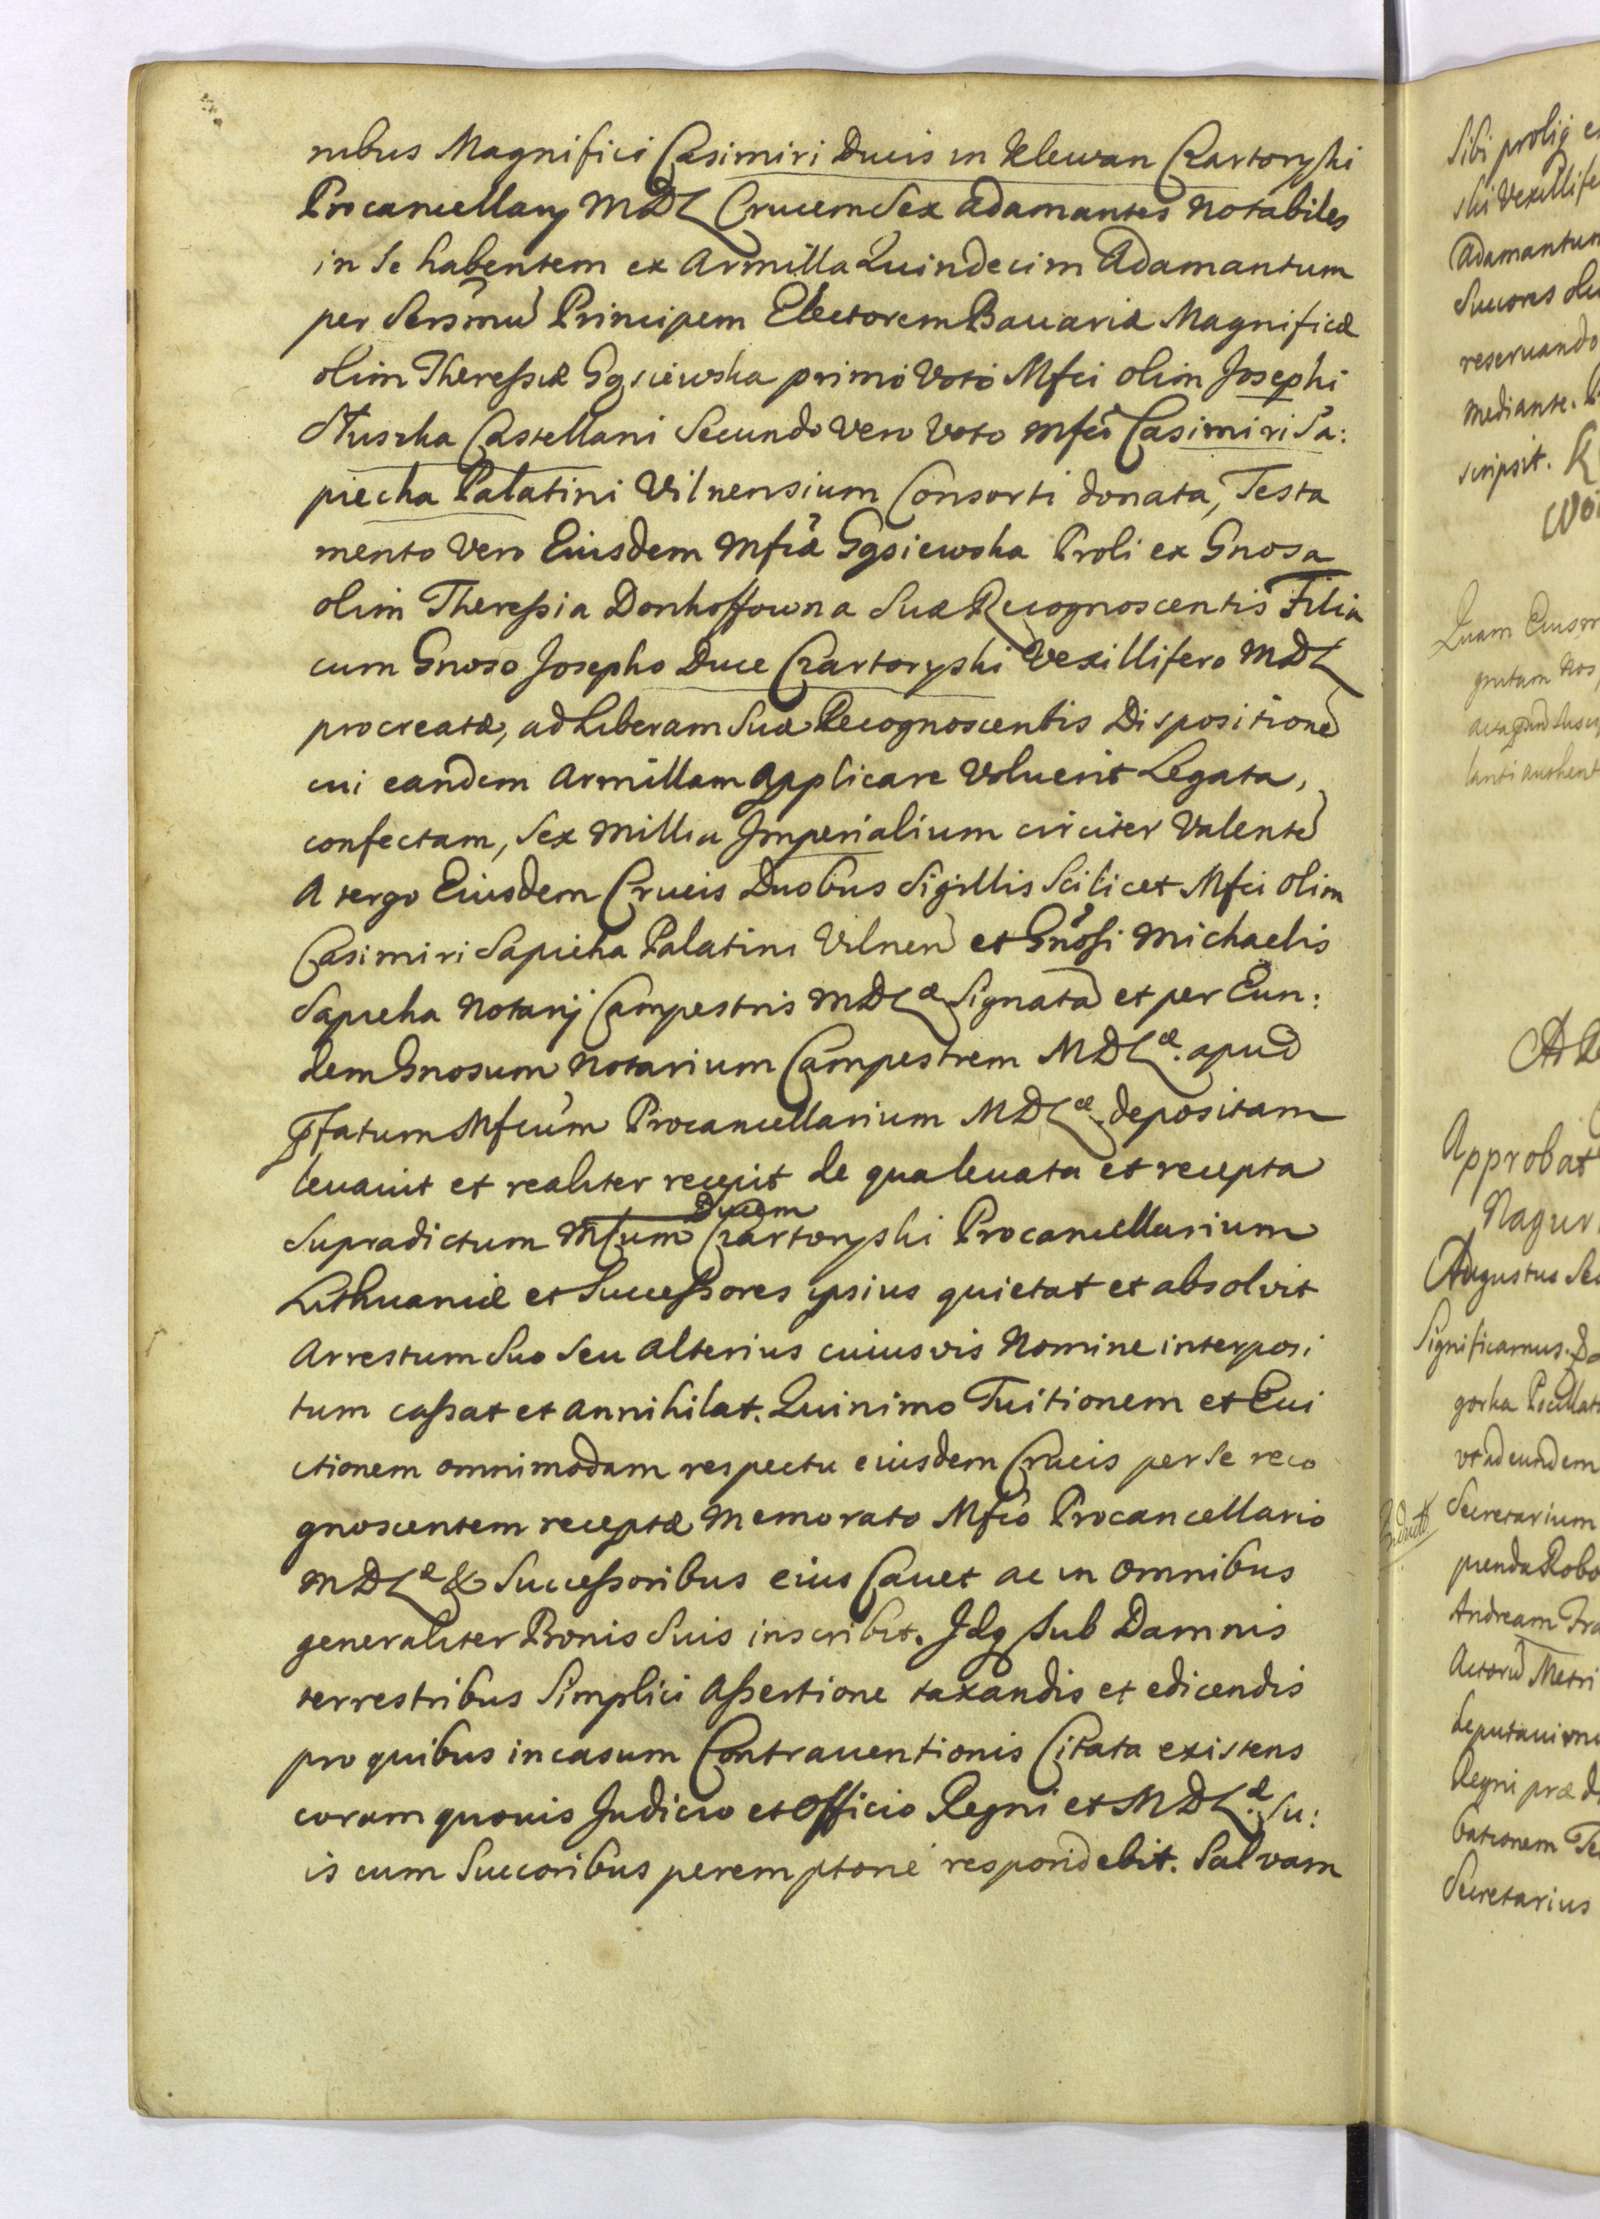 nibus Magnifici Casimiri Ducis in Klewan Czartoryski
Procancellarij MDL Crucem Sex adamantes notabiles
in se habentem ex Armilla Quindecim Adamantum
per Sersmũ Principem Electorem Bauariæ Magnificæ
olim Theressiæ Gąsiewska primo Voto Mfci olim Josephi
Słuszka Castellani Secundo vero Voto Mfco Casimiri Sa:
piecha Palatini Vilnensium Consorti donata, Testa
mento Vero Eiusdem Mfcæ Gąsiewska Proli ex Gnosa
olim Theressia Donhoffowna Suæ Recognoscentis Filia
cum Gnoso Josepho Duce Czartoryski Vexillifero MDL
procreatæ, ad Liberam Suæ Recognoscentis Dispositionẽ
cui eandem Armillam applicare Voluerit Legata,
confectam, Sex Millia Imperialium circiter Valentẽ
A tergo Eiusdem Crucis Duobus Sigillis Scilicet Mfci olim
Casimiri Sapieha Palatini Vilnen et Gnosi Michaelis
Sapieha Notarij Campestris MDLæ Signatã et per Eun:
dem Gnosum Notarium Campestrem MDLæ. apud
Pfatum Mfcum Procancellarium MDLæ. depositam
leuauit et realiter recepit de qua leuata et recepta
Supradictum Mfcum Ducem Czartoryski Procancellarium
Lithuaniæ et Successores ipsius quietat et absolvit
Arrestum Suo Seu alterius cuiusvis Nomine interposi
tum cassat et annihilat. Quinimo Tuitionem et Eui
ctionem omnimodam respectu eiusdem Crucis per Se reco
gnoscentem receptæ Memorato Mfco Procancellario
MDLæ & Successoribus eius Cauet ac in omnibus
generaliter Bonis Suis inscribit. Idq sub Damnis
terrestribus Simplici Assertione taxandis et edicendis
pro quibus in casum Contrauentionis Citata existens
coram quouis Judicio et Officio Regni et MDL.æ Su:
is cum Succoribus peremptorie respondebit. Salvam
Sibi prolig
ski Vexillife
Adamantum
reseruando
mediante.
scripsit.
Quam Eiusm
lanti authent
Approbat
Nagur
Augustus Se
Significamus.
vt ad eundem
Secretarium
Andream Fra
Actorũ Metri
deputauim
Regni præ d
bationem Te
Secretarius